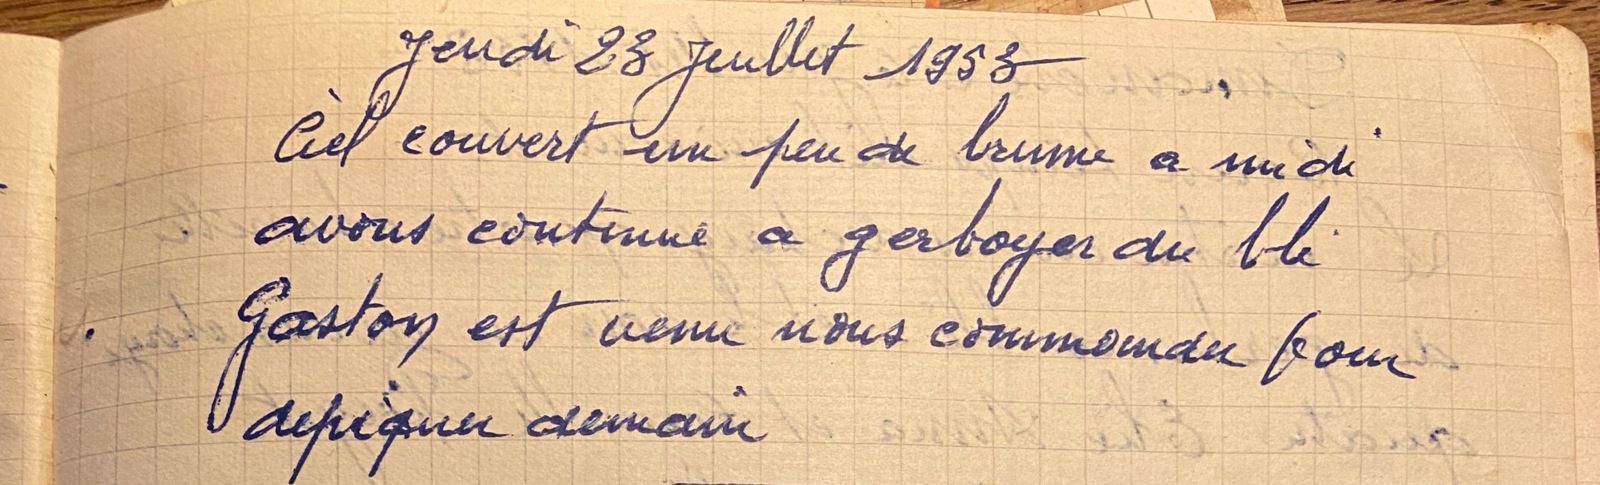 Jeudi 23 Juillet 1953
Ciel couvert un peu de brume a midi
avons continué a gerboyer du blé
Gaston est venu nous commander pour
depiquer demain